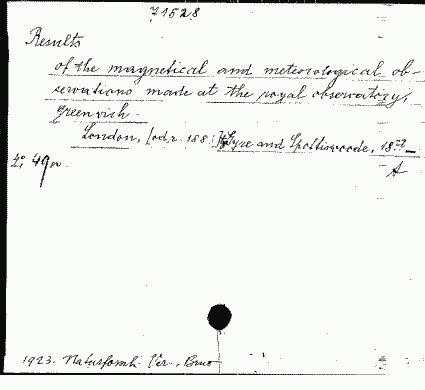 71528
Results
of the magnetical and meteorological ob-
servations made at the royal observatory,
Greenwich.
London, [od r. 188 ] Eyre and Spottiswoode, 18
4°, 49
A
1923. Naturforsch. Ver., Brno